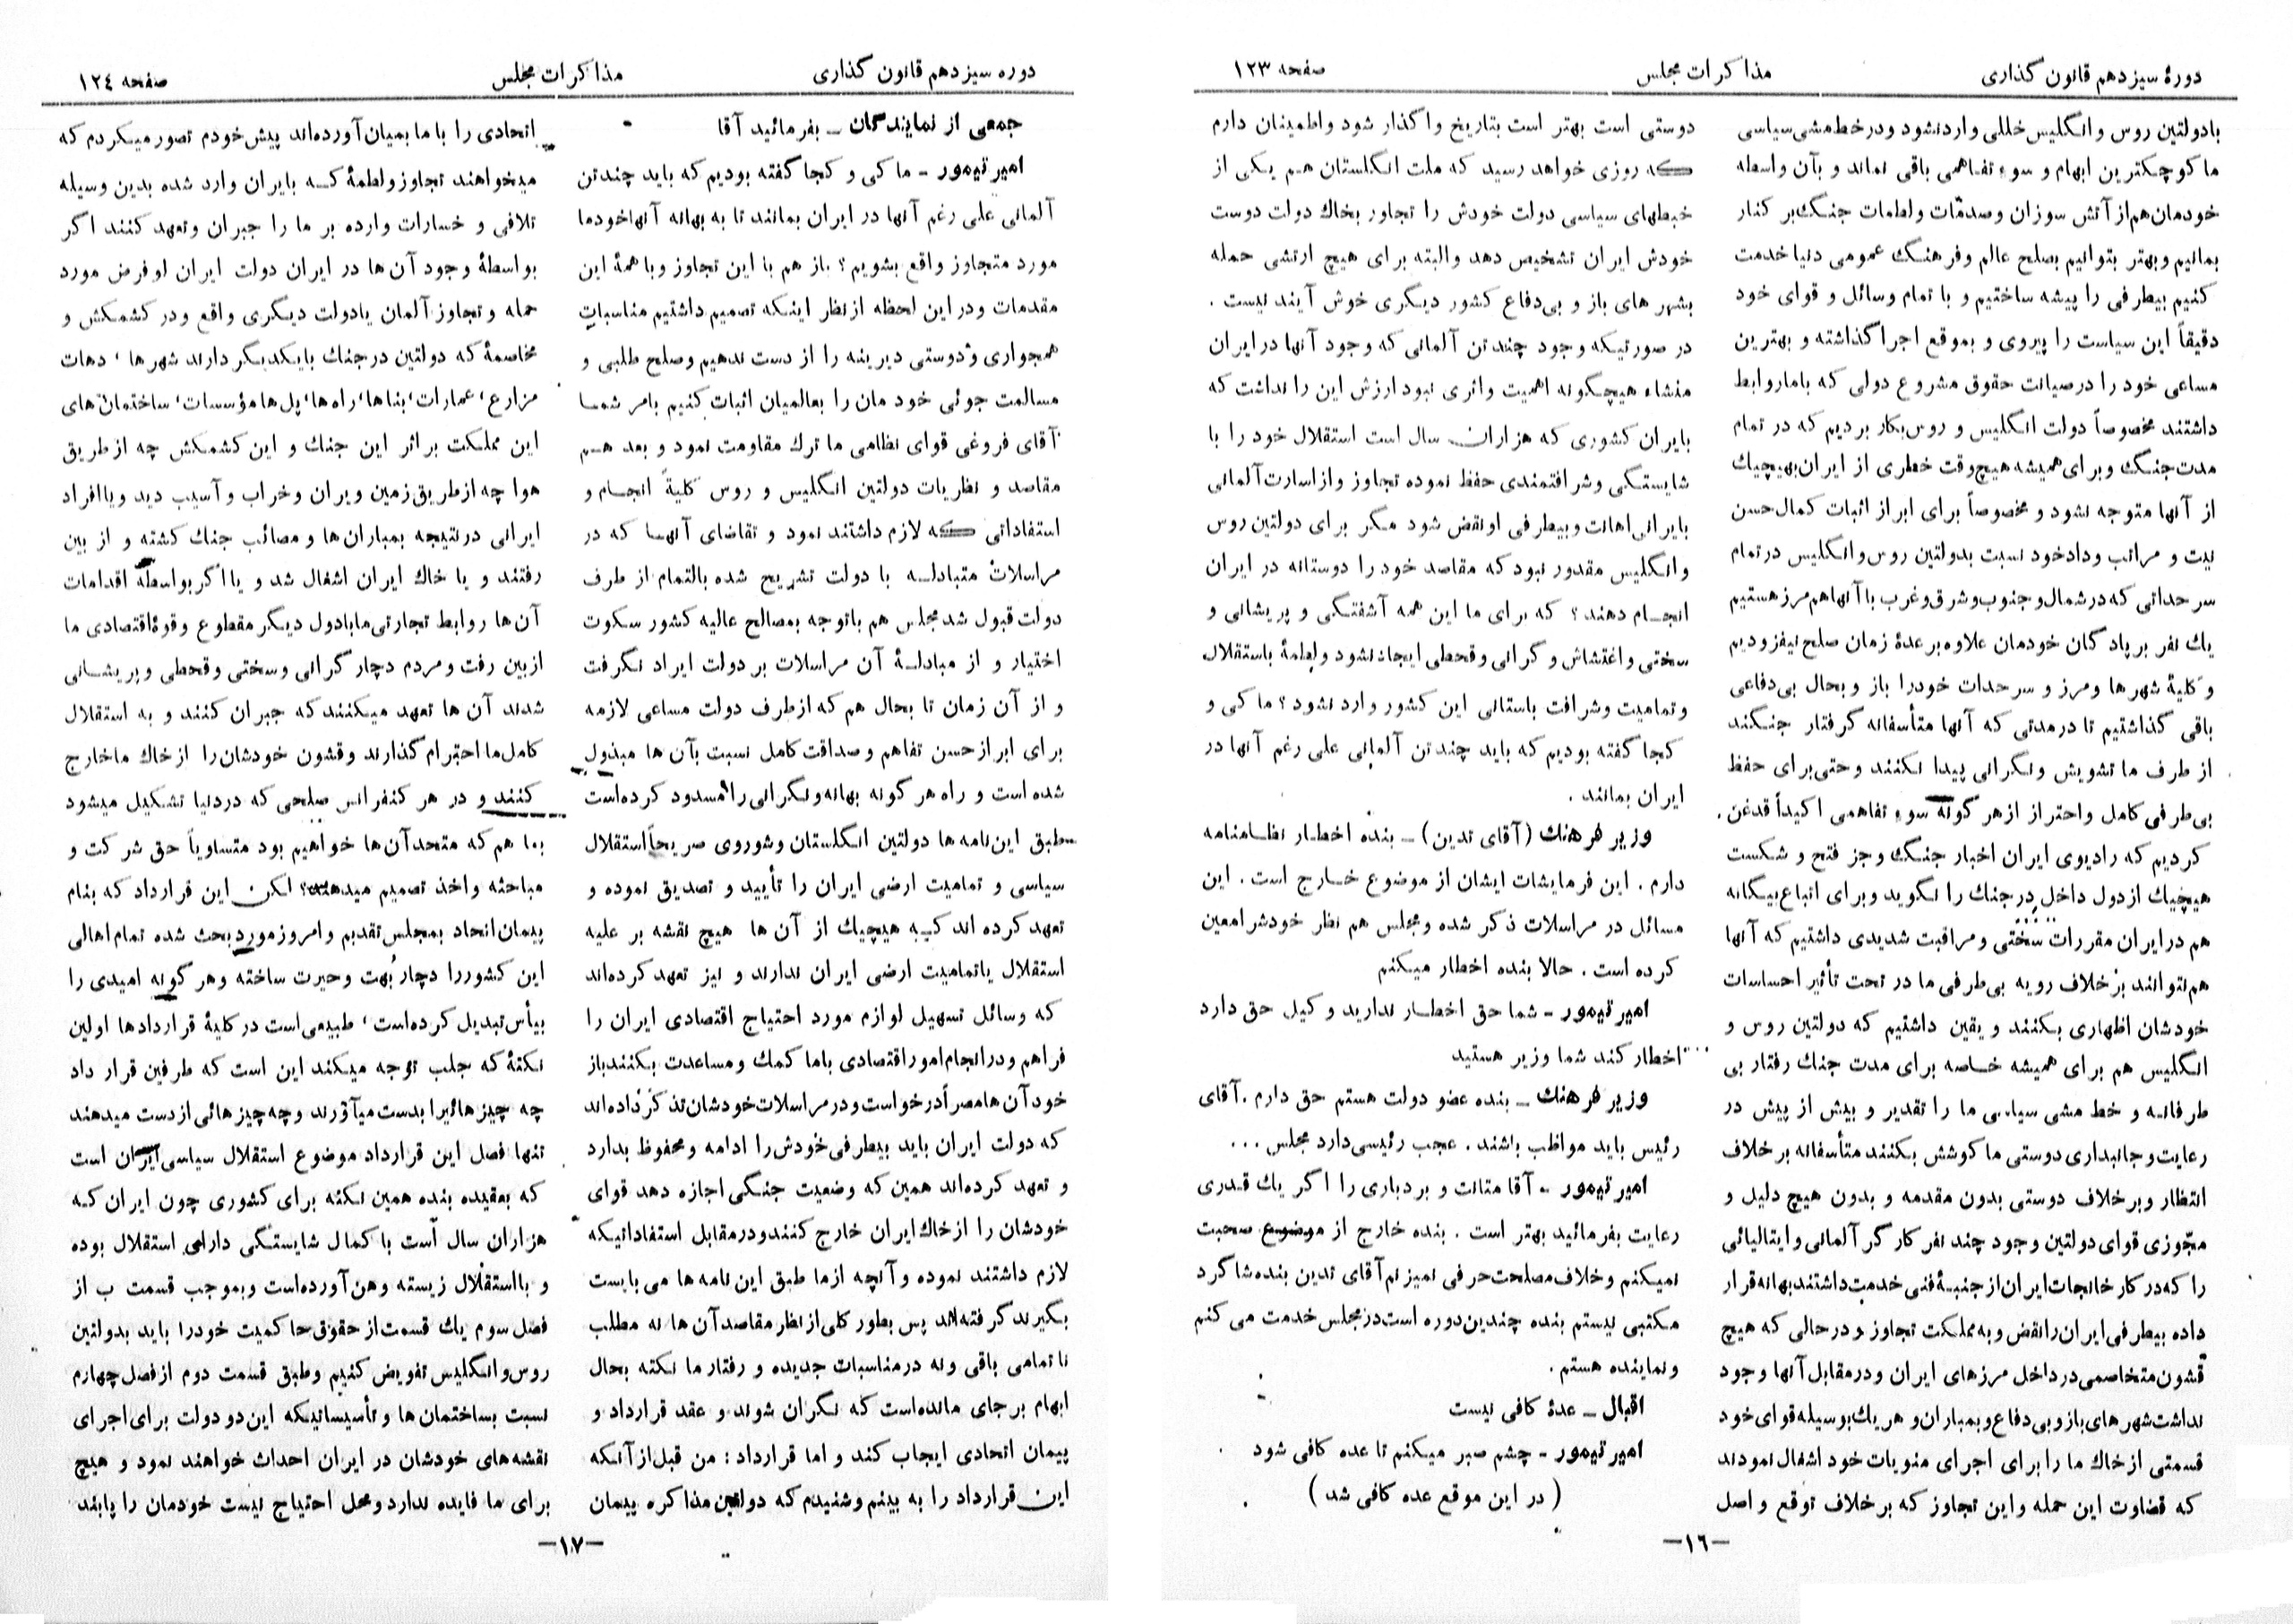 دورهٔ سیزدهم قانون گذاری
مذاکرات مجلس
صفحه ۱۲۳
بادولتین روس وانگلیس خللی واردنشود ودرخط‌مشی سیاسی
ما کوچکترین ابهام و سوء تفاهمی باقی نماند و بآن واسطه
خودمان هم‌از آتش سوزان وصدمّات ولطمات جنگ بر کنار
بمانیم وبهتر بتوانیم بصلح عالم وفرهنگ عمومی دنیا خدمت
کنیم بیطرفی را پیشه ساختیم و با تمام وسائل و قوای خود
دقیقاً این سیاست را پیروی و بموقع اجرا گذاشته و بهترین
مساعی خود را درصیانت حقوق مشروع دولی که باماروابط
داشتند مخصوصاً دولت انگلیس و روس‌بکار بردیم که در تمام
مدت جنگ وبرای همیشه هیچوقت خطری از ایران‌بهیچیك
از آنها متوجه نشود و مخصوصاً برای ابراز اثبات کمال حسن
نیت و مراتب ودادخود نسبت بدولتین روس‌وانگلیس درتمام
سرحداتی که درشمال‌و جنوب‌وشرق‌وغرب با آنها‌هم‌مرزهستیم
یك نفر بر پادگان خودمان علاوه‌بر عدهٔ زمان صلح نیفزودیم
و کلیهٔ شهرها ومرز و سرحدات خودرا باز و بحال بی‌دفاعی
باقی گذاشتیم تا درمدتی که آنها متأسفانه گرفتار جنگند
از طرف ما تشویش ونگرانی پیدا نکنند وحتی‌برای حفظ
بی‌طرفی کامل واحتراز ازهر گونه سوء تفاهمی اکیداً قدغن.
کردیم که رادیوی ایران اخبار جنگ وجز فتح و شکست
هیچیك ازدول داخل درجنك را نگوید وبرای اتباع‌بیگانه
هم درایران مقررات سختی و مراقبت شدیدی داشتیم که آنها
هم‌نتوانند برخلاف رویه بی‌طرفی ما در تحت تأثیر احساسات
خودشان اظهاری بکنند و یقین داشتیم که دولتین روس و
انگلیس هم برای همیشه خاصه برای مدت جنك رفتار بی
طرفانه و خط مشی سیاسی ما را تقدیر و بیش از پیش در
رعایت وجانبداری دوستی ما کوشش بکنند متأسفانه بر خلاف
انتظار وبرخلاف دوستی بدون مقدمه و بدون هیچ دلیل و
مجّوزی قوای دولتین وجود چند نفر کار گر آلمانی وایتالیائی
را که‌در کارخانجات‌ایران‌از جنبهٔ فنی خدمت‌داشتند‌بهانه‌قرار
داده بیطرفی‌ایران‌رانقض و به‌مملکت تجاوز و درحالی که هیچ
قشون‌متخاصمی درداخل مرزهای ایران ودرمقابل آنها وجود
نداشت‌شهرهای‌باز‌وبی‌دفاع‌و‌بمباران‌و‌هریك‌بوسیله‌قوای‌خود
قسمتی از خاك ما را برای اجرای منویات خود اشغال نمودند
که قضاوت این حمله واین تجاوز که برخلاف توقع و اصل
دوستی است بهتر است بتاریخ واگذار شود واطمینان دارم
که روزی خواهد رسید که ملت انگلستان هم یکی از
خبطهای سیاسی دولت خودش را تجاوز بخاك دولت دوست
خودش ایران تشخیص دهد والبته برای هیچ ارتشی حمله
بشهر های باز و بی‌دفاع کشور دیگری خوش آیند نیست.
در صورتیکه وجود چند تن آلمانی که وجود آنها درایران
منشاء هیچگونه اهمیت واثری نبود ارزش این را نداشت که
بایران کشوری که هزاران سال است استقلال خود را با
شایستگی وشرافتمندی حفظ نموده تجاوز وازاسارت آلمانی
بایرانی‌اهانت وبیطرفی او نقض شود مگر برای دولتین روس
وانگلیس مقدور نبود که مقاصد خود را دوستانه در ایران
انجام دهند؟ که برای ما این همه آشفتگی و پریشانی و
سختی و اغتشاش و گرانی و قحطی ایجاد‌نشود ولطمهٔ باستقلال
وتمامیت وشرافت باستانی این کشور وارد نشود؟ ما کی و
کجا گفته بودیم که باید چند تن آلمانی علی رغم آنها در
ایران بمانند.
وزیر فرهنك (آقای تدین) ــ بنده اخطار نظامنامه
دارم. این فرمایشات ایشان از موضوع خارج است. این
مسائل در مراسلات ذکر شده ومجلس هم نظر خودش‌رامعین
کرده است. حالا بنده اخطار میکنم
امیر تیمور ــ شما حق اخطار ندارید و کیل حق دارد
اخطار کند شما وزیر هستید
وزیر فرهنك ــ بنده عضو دولت هستم حق دارم. آقای
رئیس باید مواظب باشند. عجب رئیسی‌دارد مجلس ...
امیر تیمور ــ آقا متانت و بردباری را اگر یك قدری
رعایت بفرمائید بهتر است. بنده خارج از موضوع صحبت
نمیکنم وخلاف‌مصلحت‌حرفی نمیزنم آقای تدین بنده‌شاگرد
مکتبی نیستم بنده چندین‌دوره است درمجلس خدمت می کنم
ونماینده هستم.
اقبال ــ عدهٔ کافی نیست
امیر تیمور ــ چشم صبر میکنم تا عده کافی شود
(در این موقع عده کافی شد)
ــ۱٦ــ
دوره سیزدهم قانون گذاری
مذاکرات مجلس
صفحه ۱۲٤
جمعی از نمایندگان ــ بفرمائید آقا
امیر تیمور ــ ما کی و کجا گفته بودیم که باید چندتن
آلمانی علی رغم آنها در ایران بمانند تا به بهانه آنها‌خودما
مورد متجاوز واقع بشویم؟ باز هم با این تجاوز و با همهٔ این
مقدمات ودر این لحظه ازنظر اینکه تصمیم داشتیم مناسبات
همجواری ودوستی دیرینه را از دست ندهیم وصلح طلبی و
مسالمت جوئی خود مان را بعالمیان اثبات کنیم بامر شما
آقای فروغی قوای نظامی ما ترك مقاومت نمود و بعد هم
مقاصد و نظریات دولتین انگلیس و روس کلیةً انجام و
استفاداتی که لازم داشتند نمود و تقاضای آنها که در
مراسلات متبادله با دولت تشریح شده بالتمام از طرف
دولت قبول شد مجلس هم باتوجه بمصالح عالیه کشور سکوت
اختیار و از مبادلهٔ آن مراسلات بر دولت ایراد نگرفت
و از آن زمان تا بحال هم که ازطرف دولت مساعی لازمه
برای ابراز حسن تفاهم وصداقت کامل نسبت بآن ها مبذول
شده است و راه هر گونه بهانه‌ونگرانی را مسدود کرده‌است
طبق این‌نامه ها دولتین انگلستان وشوروی صریحاً استقلال
سیاسی و تمامیت ارضی ایران را تأیید و تصدیق نموده و
تعهد کرده اند که هیچیك از آن ها هیچ نقشه بر علیه
استقلال یاتمامیت ارضی ایران ندارند و نیز تعهد کرده‌اند
که وسائل تسهیل لوازم مورد احتیاج اقتصادی ایران را
فراهم ودرانجام‌امور‌اقتصادی باما کمك ومساعدت بکنند‌باز
خود‌آن‌ها‌مصراً‌درخواست‌ودرمراسلات‌خودشان‌تذکر‌داده‌اند
که دولت ایران باید بیطرفی‌خودش‌را ادامه ومحفوظ بدارد
و تعهد کرده‌اند همین که وضعیت جنگی اجازه دهد قوای
خودشان را از خاك ایران خارج کنند‌ودرمقابل استفاداتیکه
لازم داشتند نموده و آنچه ازما طبق این نامه ها می بایست
بگیرند گرفته‌اند پس بطور کلی‌از نظر مقاصد آن ها نه مطلب
ناتمامی باقی ونه درمناسبات جدیده و رفتار ما نکته بحال
ابهام برجای مانده‌است که نگران شوند و عقد قرارداد و
پیمان اتحادی ایجاب کند و اما قرارداد: من قبل‌از آنکه
این قرارداد را به بینم وشنیدم که دولتین مذاکره پیمان
اتحادی را با ما بمیان آورده‌اند پیش خودم تصور میکردم که
میخواهند تجاوزولطمهٔ که بایران وارد شده بدین وسیله
تلافی و خسارات وارده بر ما را جبران وتعهد کنند اگر
بواسطهٔ وجود آن ها در ایران دولت ایران لوفرض مورد
حمله وتجاوز آلمان یادولت دیگری واقع ودر کشمکش و
مخاصمهٔ که دولتین درجنك بایکدیگر دارند شهرها، دهات
مزارع، عمارات، بناها، راه‌ها، پل‌ها‌مؤسسات، ساختمان‌های
این مملکت بر اثر این جنك و این کشمکش چه ازطریق
هوا چه ازطریق زمین ویران وخراب وآسیب دید ویاافراد
ایرانی درنتیجه بمباران‌ها و مصائب جنك کشته و از بین
رفتند و یا خاك ایران اشغال شد و یا اگر بواسطه اقدامات
آن‌ها روابط تجارتی‌ما‌بادول دیگر مقطوع وقوهٔ‌اقتصادی ما
ازبین رفت ومردم دچار گرانی وسختی وقحطی وپریشانی
شدند آن ها تعهد میکنند که جبران کنند و به استقلال
کامل‌ما احترام گذارند وقشون خودشان‌را ازخاك ماخارج
کنند و در هر کنفرانس صلحی که دردنیا تشکیل میشود
بما هم که متحد آن‌ها خواهیم بود متساویاً حق شرکت و
مباحثه واخذ تصمیم میدهند؟ لکن این قرارداد که بنام
پیمان‌اتحاد بمجلس‌تقدیم وامروز‌مورد‌بحث شده تمام‌اهالی
این کشوررا دچار بُهت وحیرت ساخته وهر گونه امیدی را
بیأس‌تبدیل کرده‌است، طبیعی‌است در کلیهٔ قراردادها اولین
نکتهٔ که جلب توجه میکند این است که طرفین قرار داد
چه چیزهائیرا بدست میآورند وچه چیزهائی ازدست میدهند
تنها فصل این قرارداد موضوع استقلال سیاسی ایران است
که بعقیده بنده همین نکته برای کشوری چون ایران که
هزاران سال است با کمال شایستگی دارای استقلال بوده
و بااستقلال زیسته وهن آورده‌است وبموجب قسمت ب از
فصل سوم یك قسمت‌از حقوق حاکمیت خودرا باید بدولتین
روس‌وانگلیس تفویض کنیم وطبق قسمت دوم از فصل چهارم
نسبت بساختمان ها و تأسیساتیکه این دو دولت برای‌اجرای
نقشه‌های خودشان در ایران احداث خواهند نمود و هیچ
برای ما فایده ندارد و محل احتیاج نیست خودمان را پابند
ــ۱۷ــ